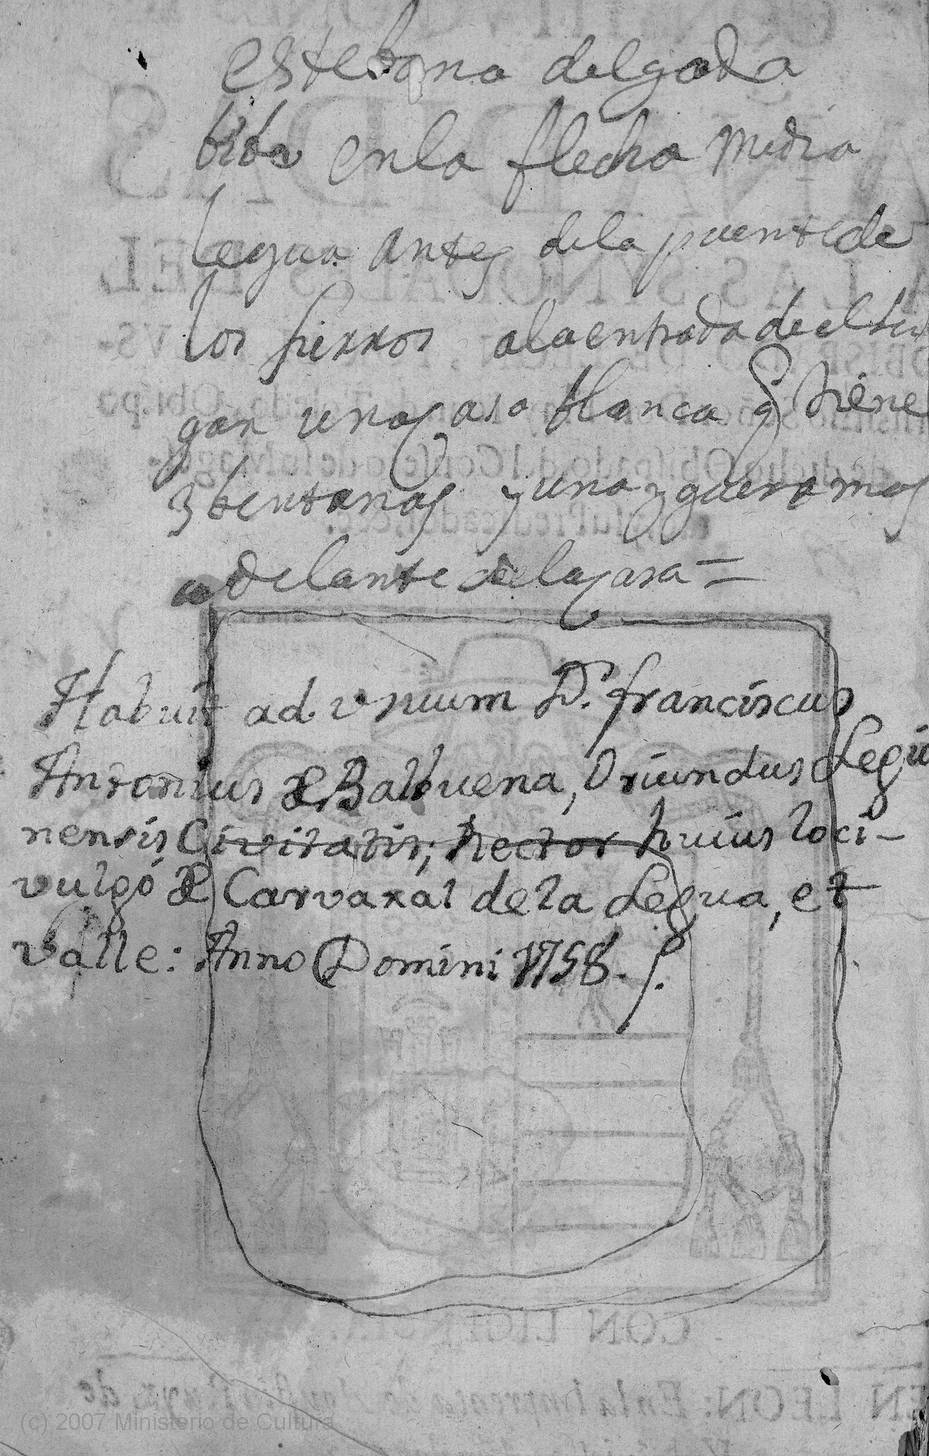 estebana delgada
biba en la flecha media
legua antes de la puente de
los fierros a la entrada de el lu
gar una casa blanca q tiene
3 bentanas y una yguera mas
adelante de la casa =
Habuit ad vsuum D. franciscus
Antonius de Balbuena, Oriundus Legio
nensis Civitatis; Rector huius loci-
vulgó de Carvaxal de la Legua, et
valle: Anno Domini 1758.
CON LICENCIA.
EN LEON: En la Imprenta de
(c) 2007 Ministerio de Cultura